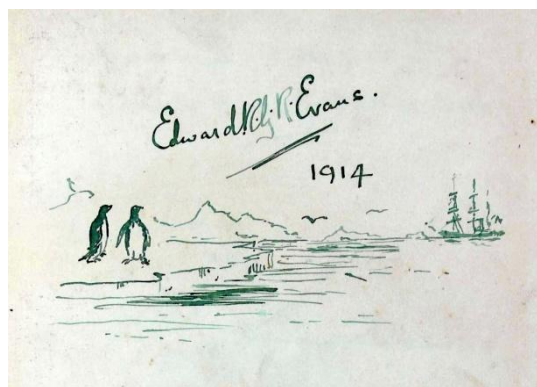 Edward R.G.R. Evans.
1914